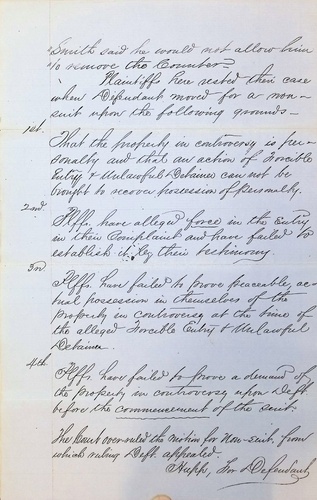 Smith said he would not allow him
to remove the Counter.
Plaintiffs here rested their case
when Defendant moved for a non-
suit upon the following grounds—
1st.
That the property in controversy is per-
sonalty and that an action of Forcible
Entry & Unlawful Detainer can not be
brought to recover possession of personalty.
2nd
Plffs. have alleged force in the Entry
in their Complaint and have failed to
establish it by their testimony.
3rd
Plffs. have failed to prove peaceable, ac-
tual possession in themselves of the
property in controversy at the time of
the alleged Forcible Entry & Unlawful
Detainer.
4th
Plffs. have failed to prove a demand of
the property in controversy upon Deft.
before the commencement of the suit.
The Court overruled the motion for Non-suit, from
which ruling Deft. appealed.
Hupp, For Defendant